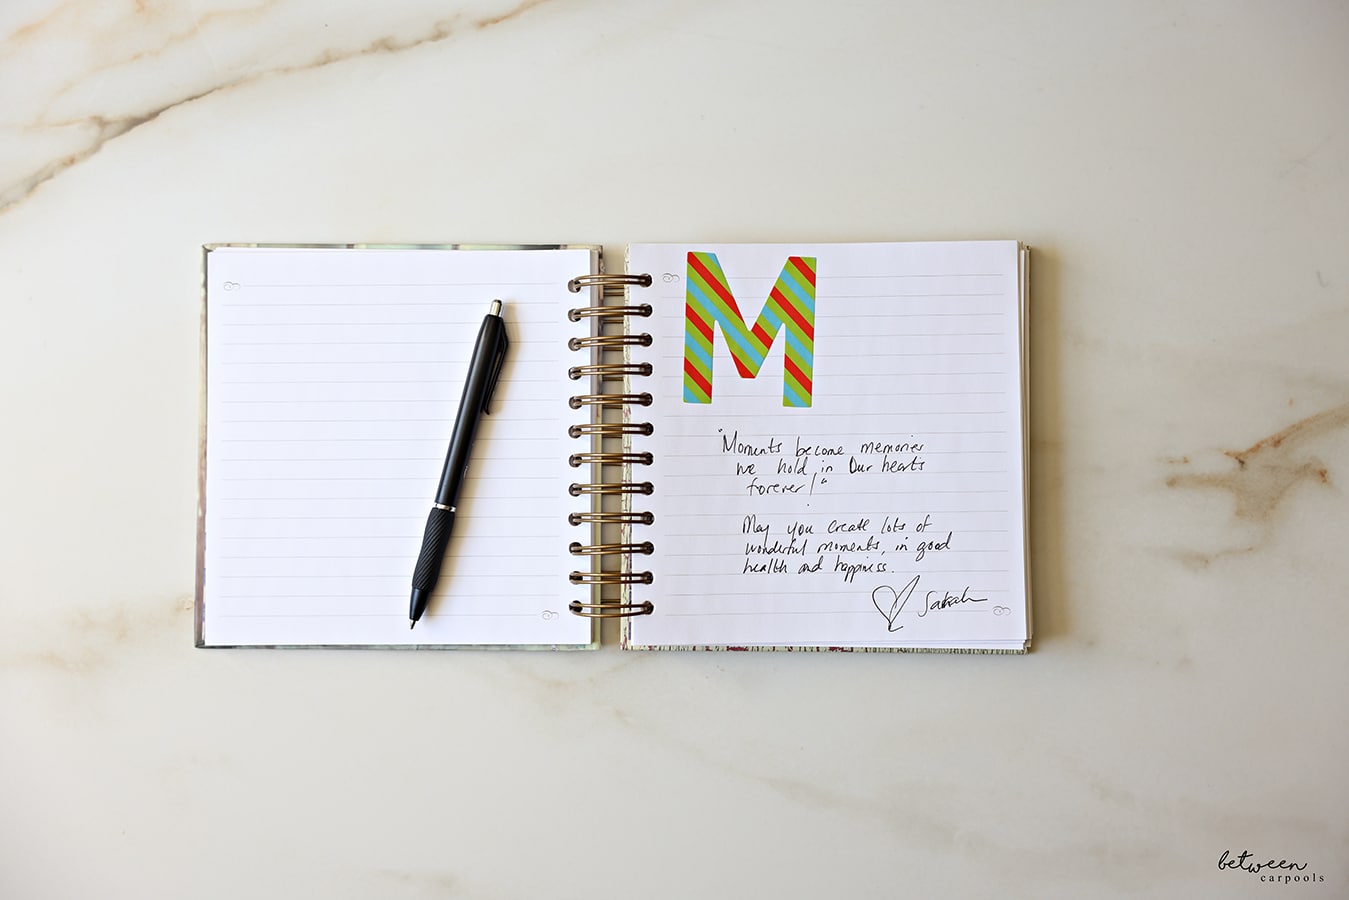 M
"Moments become memories
we hold in Our hearts
forever!"
May you create lots of
wonderful moments, in good
health and happiness.
Sarah
between
carpools